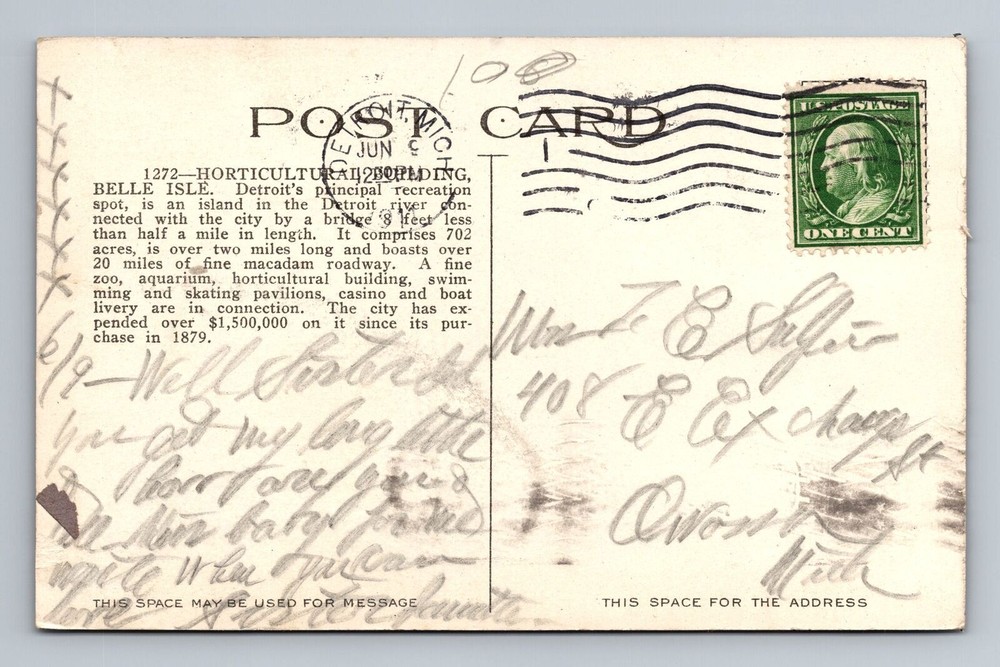 108
POST CARD
DETROIT, MICH.
JUN 9
12 30 PM
U.S. POSTAGE
ONE CENT
1272—HORTICULTURAL BUILDING,
BELLE ISLE. Detroit's principal recreation
spot, is an island in the Detroit river con-
nected with the city by a bridge 8 feet less
than half a mile in length. It comprises 702
acres, is over two miles long and boasts over
20 miles of fine macadam roadway. A fine
zoo, aquarium, horticultural building, swim-
ming and skating pavilions, casino and boat
livery are in connection. The city has ex-
pended over $1,500,000 on it since its pur-
chase in 1879.
x x x x x x x
6/9—Well Sister did
you get my long little
how are you &
Kiss baby for me
write when you can
love Sister
THIS SPACE MAY BE USED FOR MESSAGE
Mrs E
408 E Exchange
St
Owosso
Mich
THIS SPACE FOR THE ADDRESS